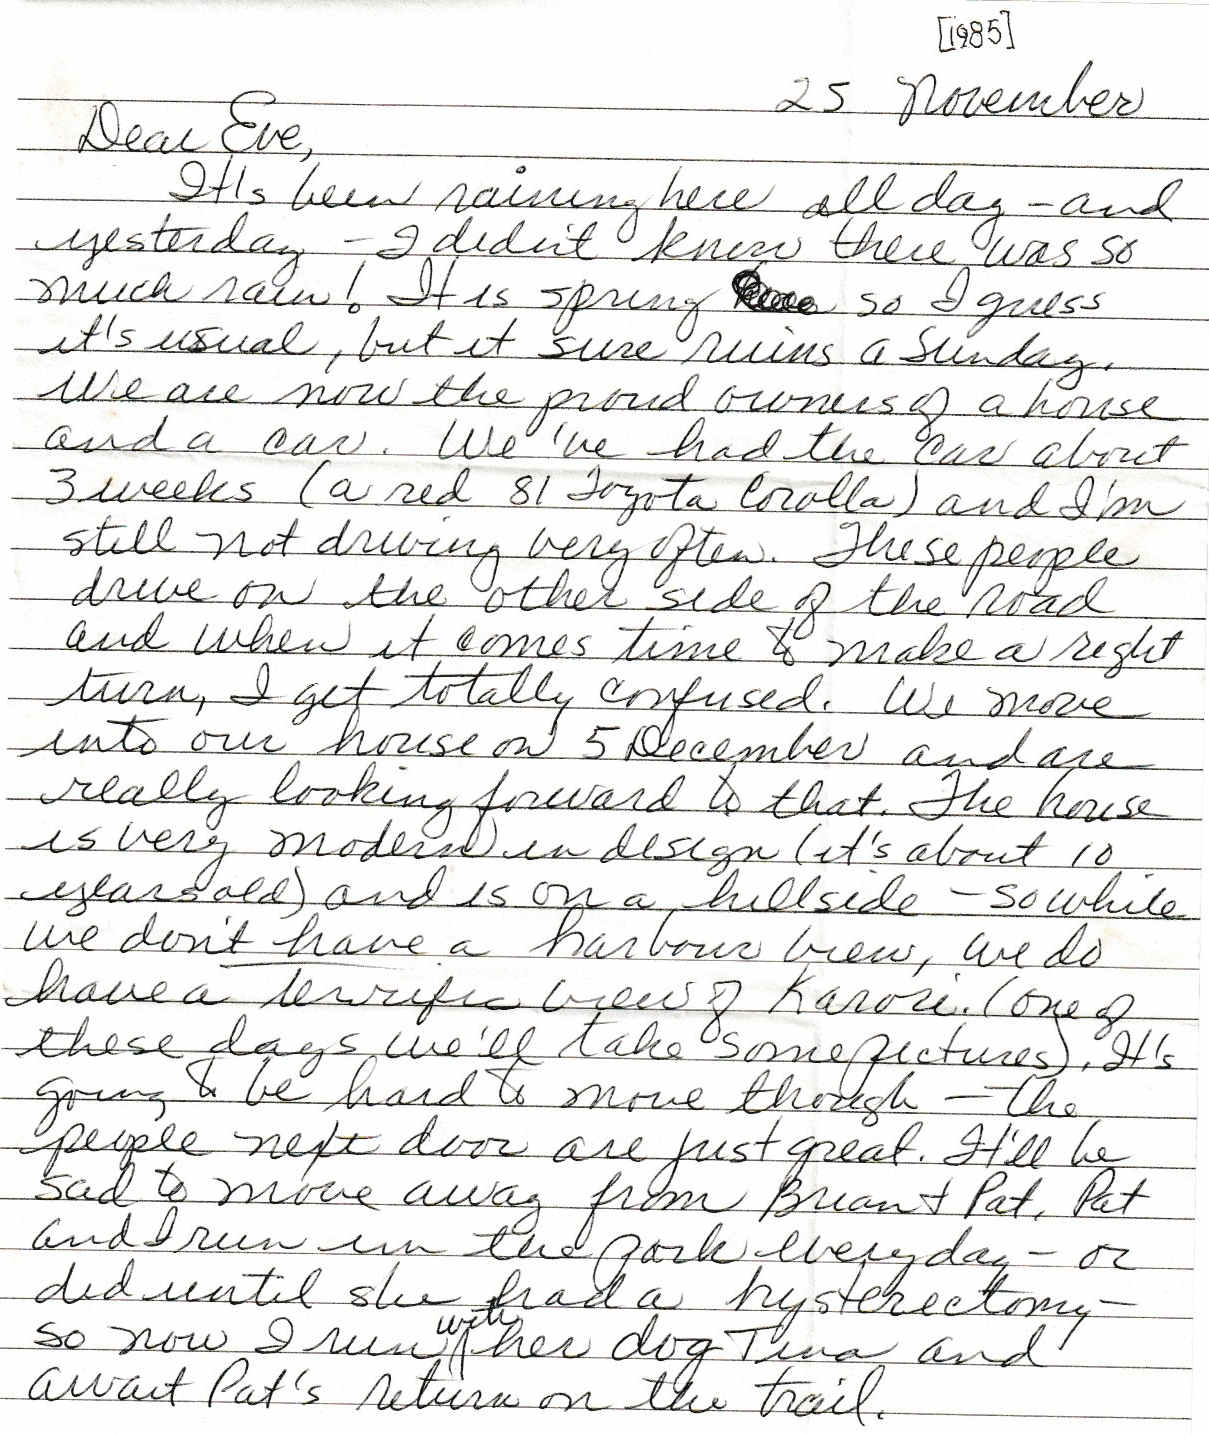 [1985]
25 November
Dear Eve,
It's been raining here all day - and
yesterday - I didn't know there was so
much rain! It is spring so I guess
it's usual, but it sure ruins a Sunday.
We are now the proud owners of a house
and a car. We've had the car about
3 weeks (a red 81 Toyota Corolla) and I'm
still not driving very often. These people
drive on the other side of the road
and when it comes time to make a right
turn, I get totally confused. We move
into our house on 5 December and are
really looking forward to that. The house
is very modern in design (it's about 10
years old) and is on a hillside - so while
we don't have a harbour view, we do
have a terrific view of Karori. (one of
these days we'll take some pictures). It's
going to be hard to move though - the
people next door are just great. It'll be
sad to move away from Brian + Pat. Pat
and I run in the park everyday - or
did until she had a hysterectomy -
so now I run with her dog Tina and
await Pat's return on the trail.